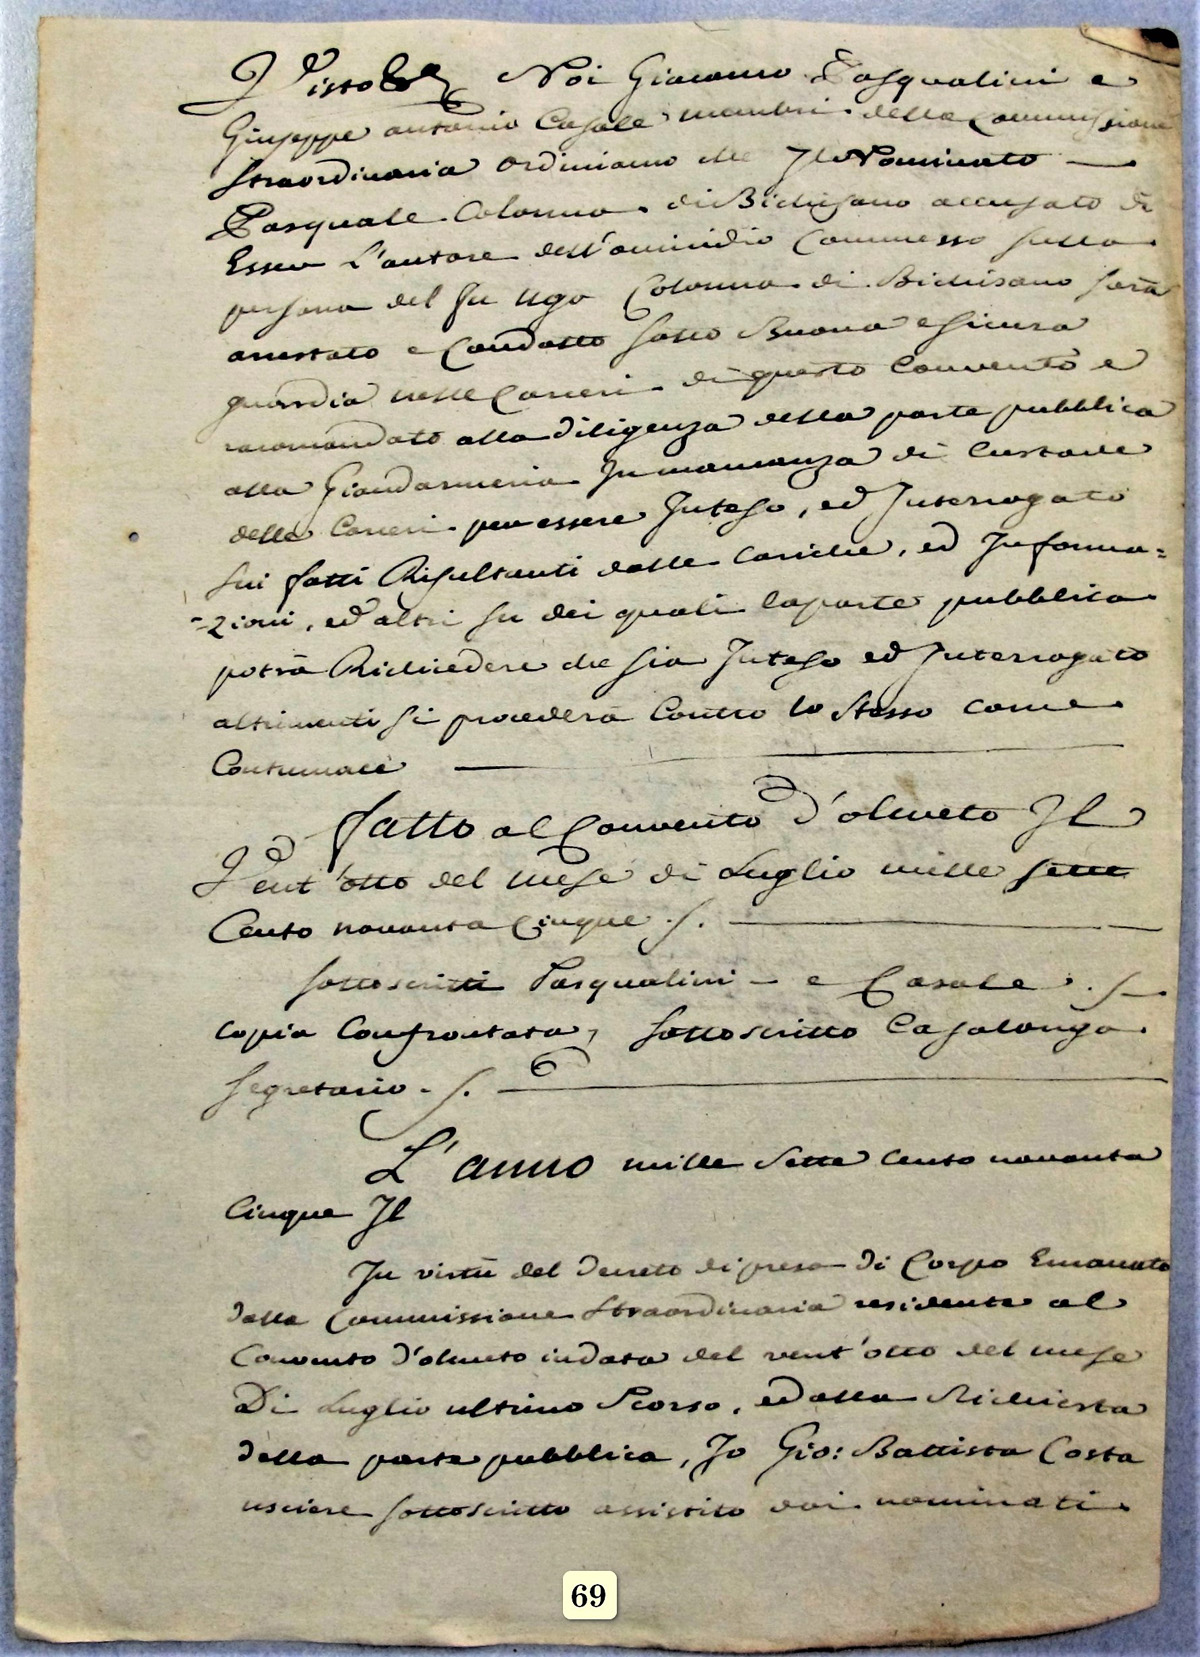 Visto &c. Noi Giacomo Pasqualini e
Giuseppe antonio Casale membri della Commissione
straordinaria ordiniamo che Il Nominato —
Pasquale Colonna di Bichisano accusato di
Esser L'autore dell'omicidio Commesso sulla
persona del fu ugo Colonna di Bichisano sarà
arrestato e Condotto sotto Buona e sicura
guardia nelle Carceri di questo Convento e
racomandato alla diligenza della parte pubblica
alla Giandarmeria In mancanza di Custode
delle Carceri per essere Inteso, ed Interrogato
sui fatti Risultanti dalle Cariche, ed Informa=
-zioni, ed altri su dei quali la parte pubblica
potrà Richiedere che sia Inteso ed Interrogato
altrimenti si procederà Contro lo stesso come
Contumace —
fatto al Convento d'olmeto Il
Vent'otto del mese di Luglio mille sette
Cento novanta Cinque /. —
sottoscritti Pasqualini — e Casale ./—
copia Confrontata, sottoscritto Casalonga
segretario - /. —
L'anno mille sette cento novanta
Cinque Il
In virtù del decreto di presa di Corpo Emanato
dalla Commissione straordinaria residente al
Convento d'olmeto indata del vent'otto del mese
Di Luglio ultimo scorso, ed alla Richiesta
della parte pubblica, Io Gio: Battista Costa
usciere sottoscritto assistito dai nominati
69